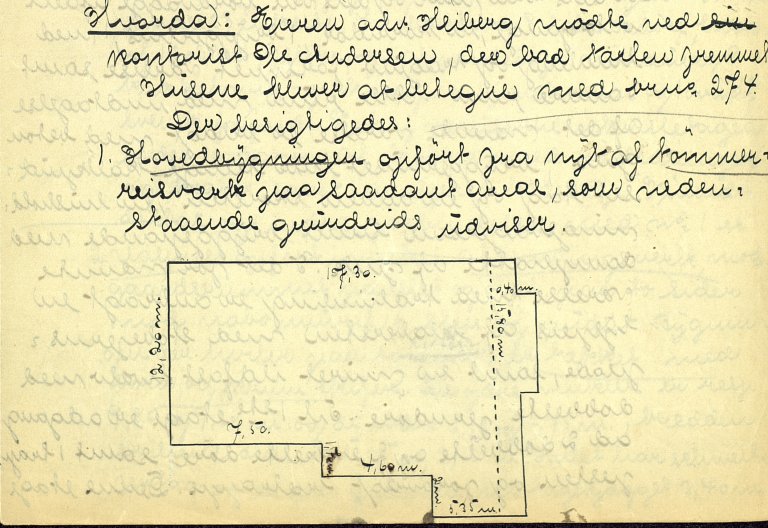 Hvorda: Eieren adv. Heiberg mødte ved sin
kontorist Ole Andersen, der bad taxten fremmet
Husene bliver at betegne med brnr. 274.
Der besigtigedes:
1. Hovedbygningen opført fra nyt af tømmer-
reisverk paa saadant areal, som neden-
staaende grundrids udviser.
17,30.
0,40 m.
15,80 m.
12,20 m.
7,50.
4,60 m.
2 m
5,35 m.